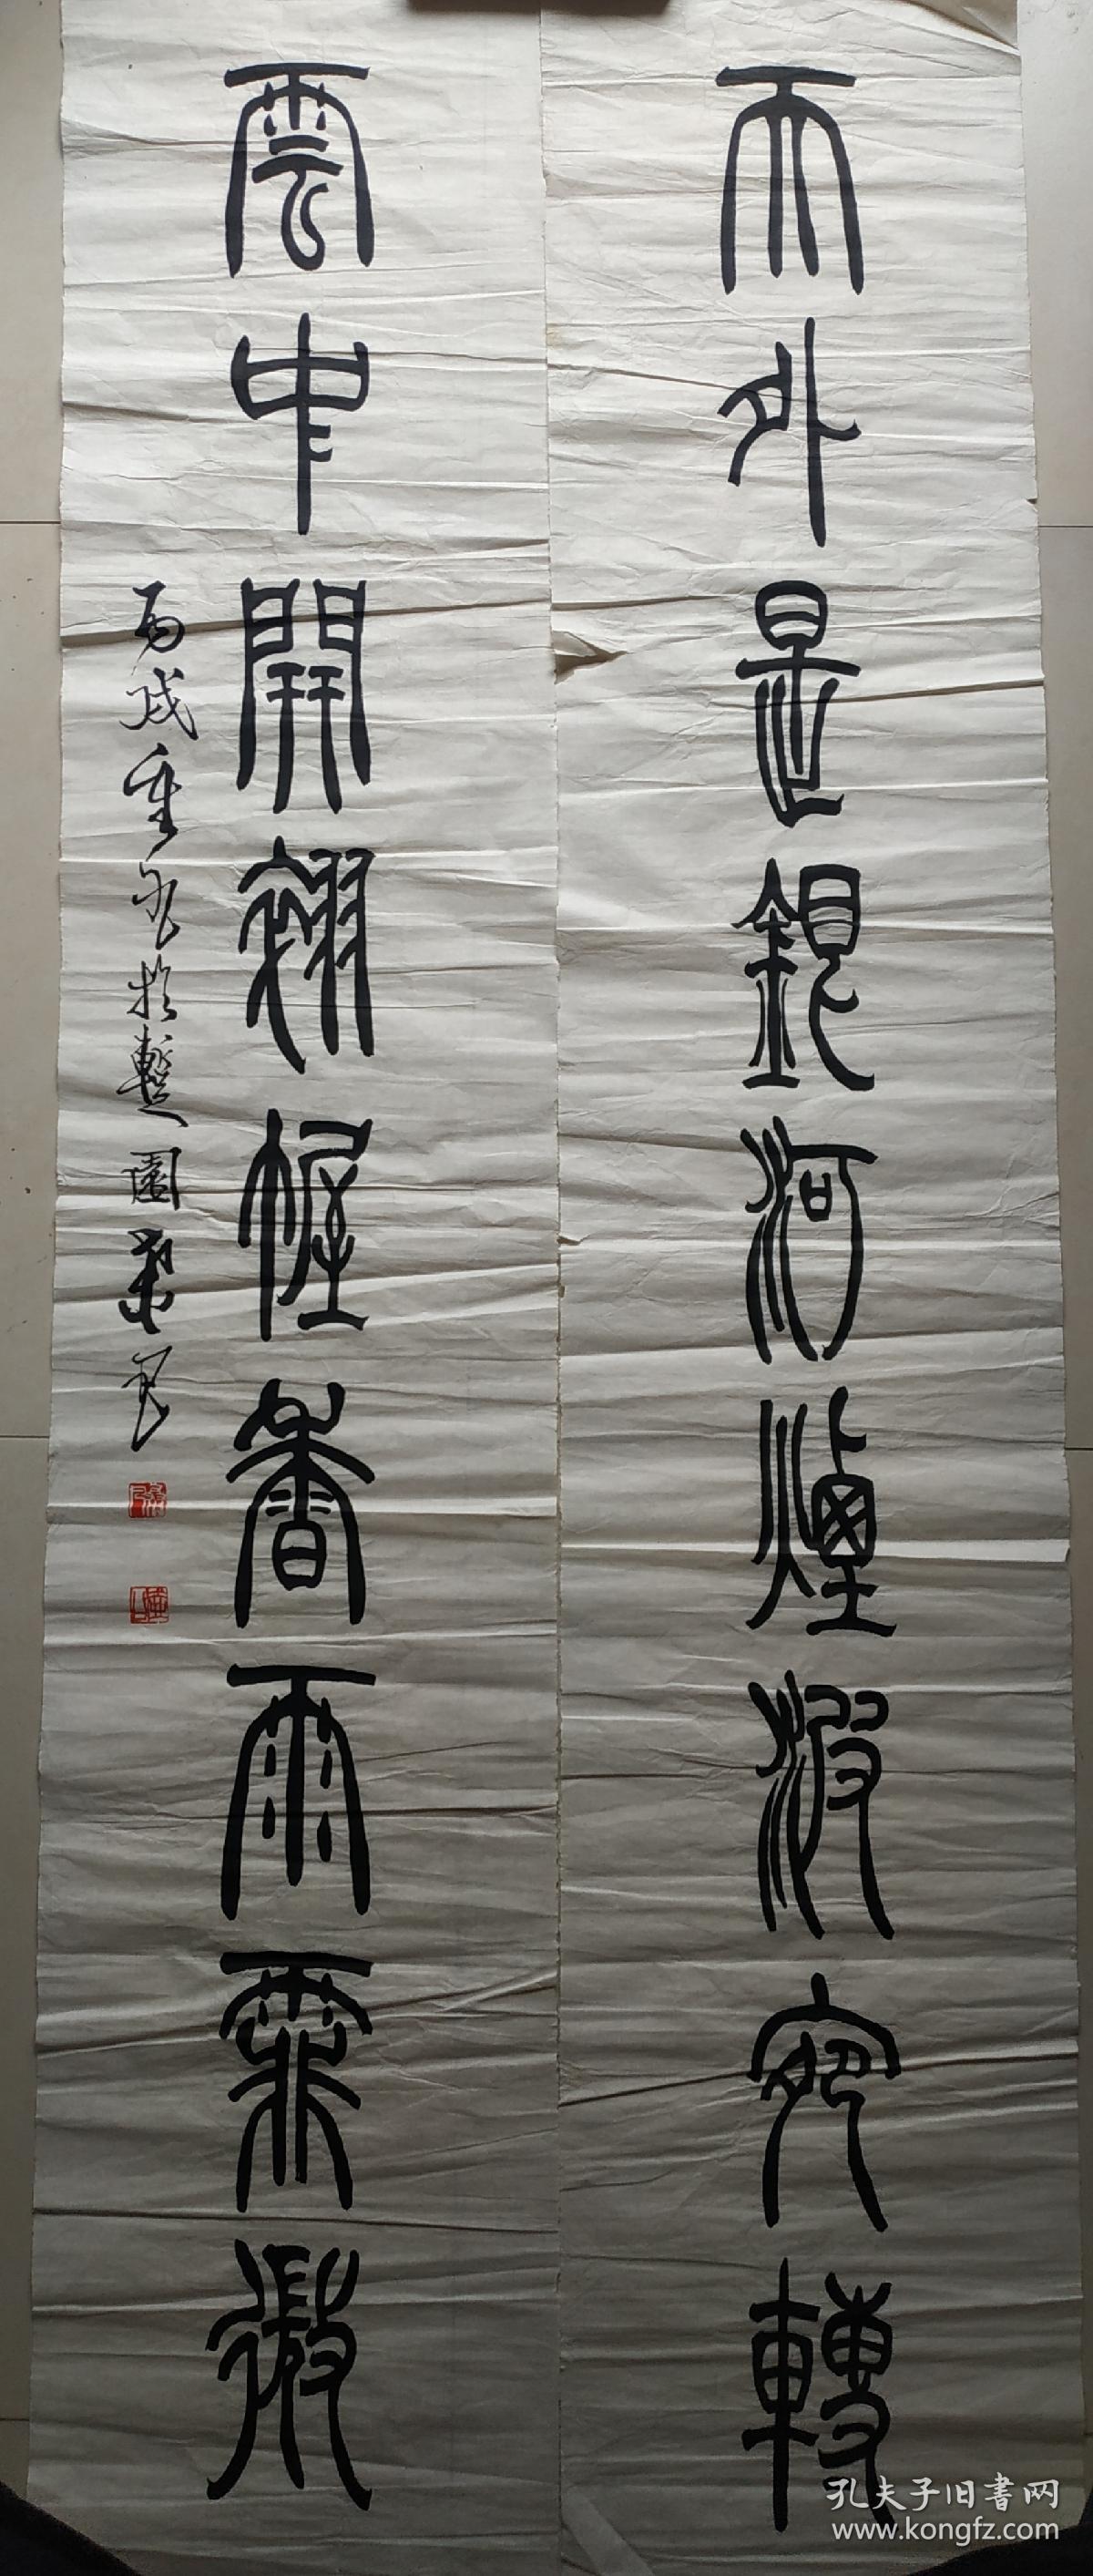 天外是銀河煙波宛轉
雲中開翠幄香雨霏微
丙戌重於暫園
孔夫子旧書网
www.kongfz.com